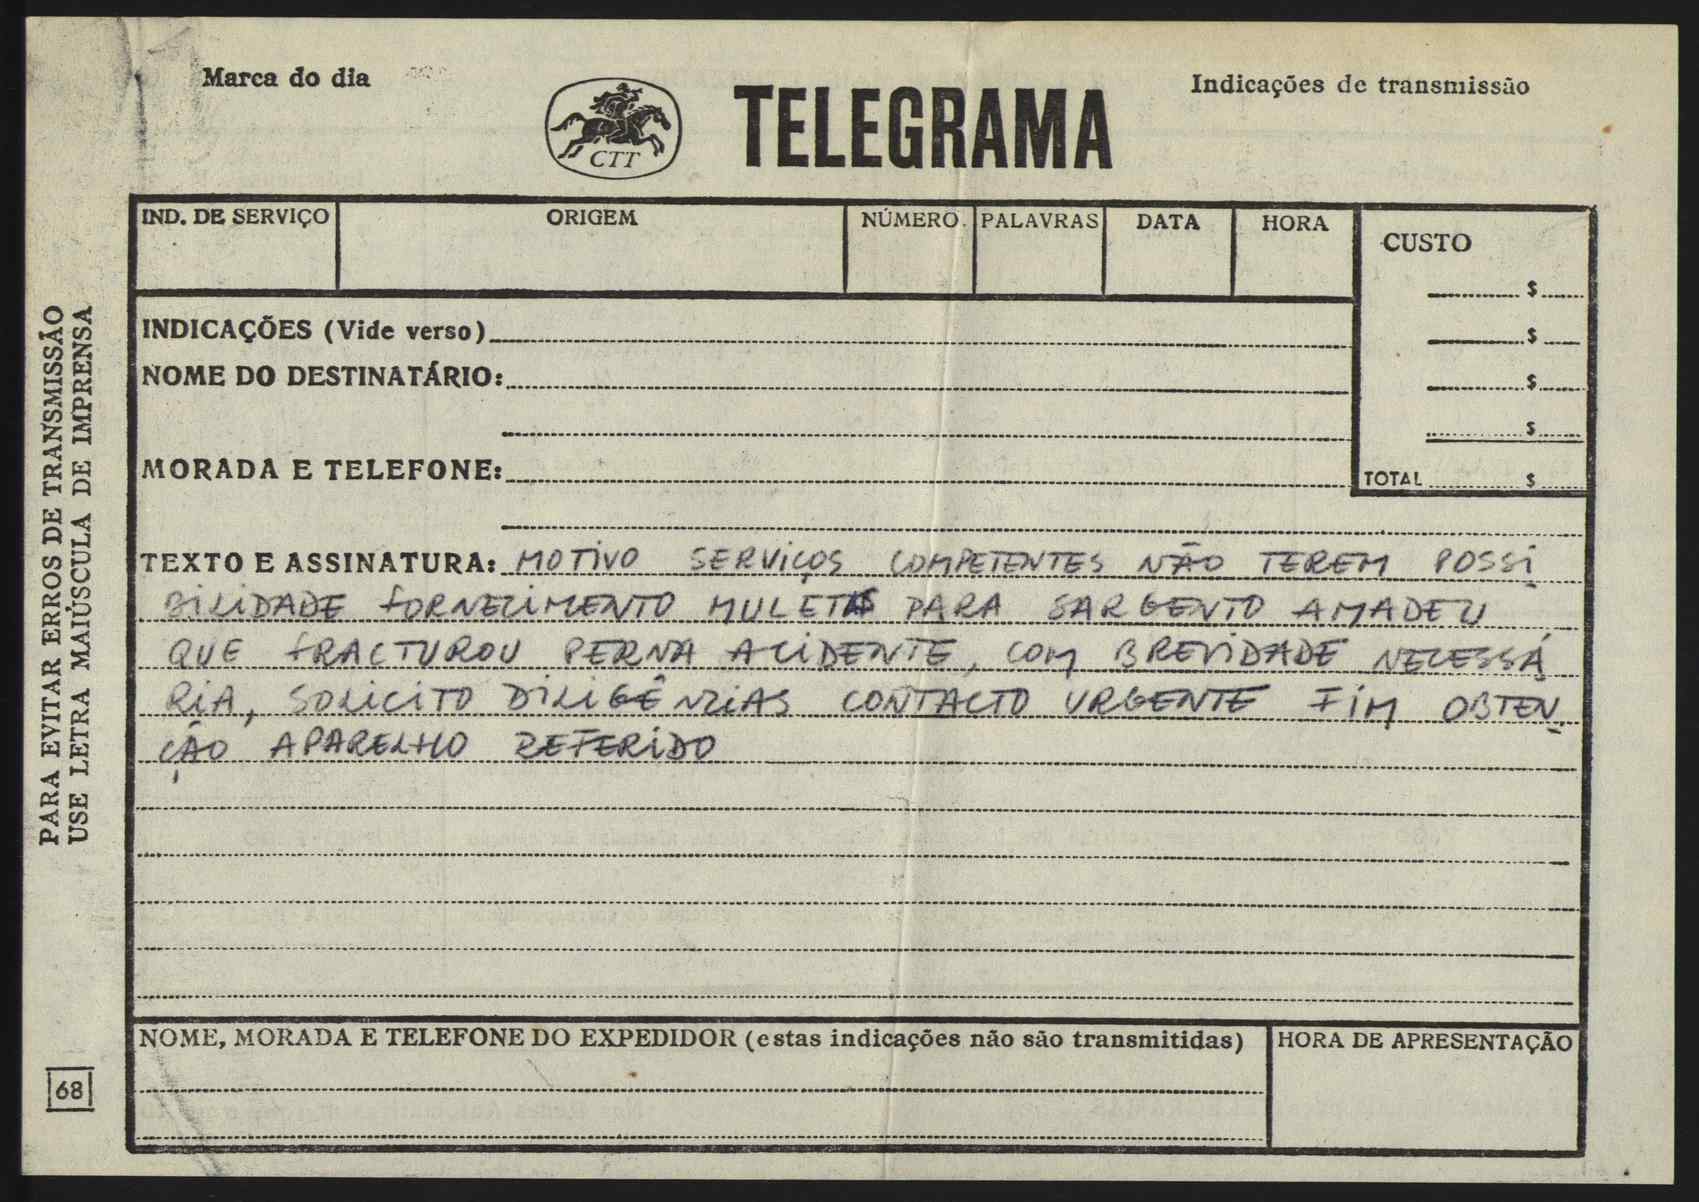 Marca do dia
CTT
TELEGRAMA
Indicações de transmissão
IND. DE SERVIÇO
ORIGEM
NÚMERO
PALAVRAS
DATA
HORA
CUSTO
$
$
$
$
TOTAL $
INDICAÇÕES (Vide verso)
NOME DO DESTINATÁRIO:
MORADA E TELEFONE:
TEXTO E ASSINATURA: MOTIVO SERVIÇOS COMPETENTES NÃO TEREM POSSI
BILIDADE FORNECIMENTO MULETAS PARA SARGENTO AMADEU
QUE FRACTUROU PERNA ACIDENTE, COM BREVIDADE NECESSÁ
RIA, SOLICITO DILIGÊNCIAS CONTACTO URGENTE FIM OBTEN
ÇÃO APARELHO REFERIDO
NOME, MORADA E TELEFONE DO EXPEDIDOR (estas indicações não são transmitidas)
HORA DE APRESENTAÇÃO
PARA EVITAR ERROS DE TRANSMISSÃO
USE LETRA MAIÚSCULA DE IMPRENSA
68